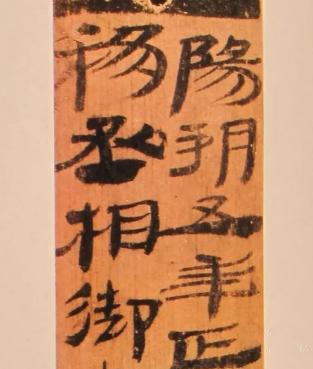 陽朔五年正
移丞相御